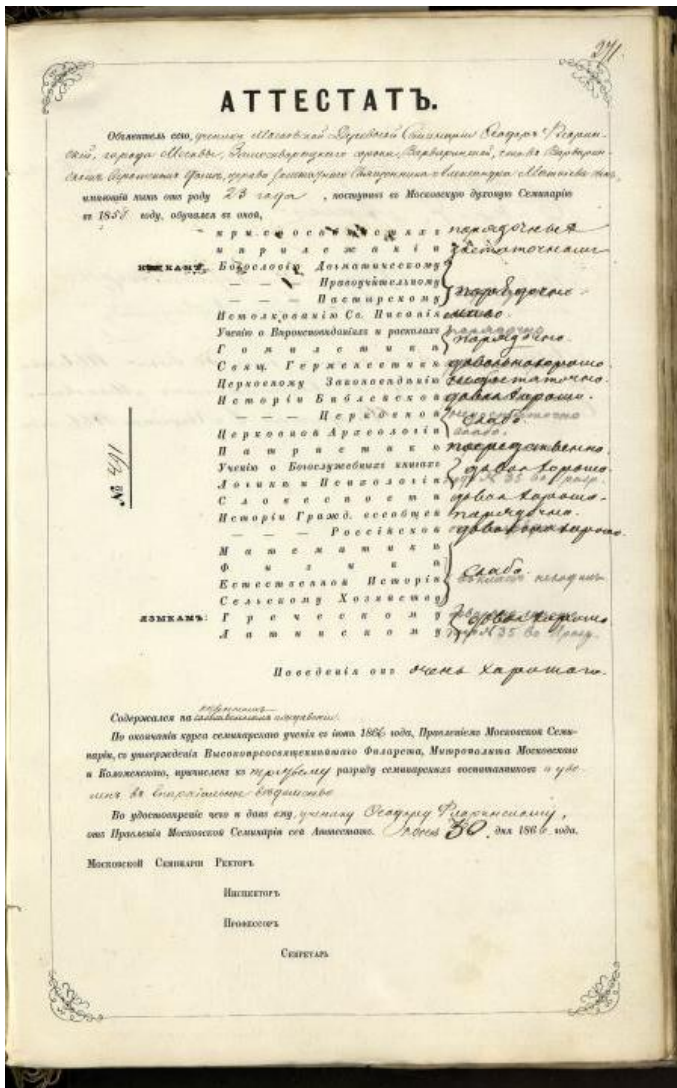 271.
АТТЕСТАТЪ.
Объявитель сего, ученикъ Московской Духовной Семинаріи Ѳеодоръ
города Москвы, Замоскворѣцкаго
Священника Александра сынъ,
имѣющій нынѣ отъ роду 23 года, поступивъ въ Московскую духовную Семинарію
въ 185 году, обучался въ оной,
при способностяхъ порядочныхъ
и прилежаніи достаточномъ
Богословію Догматическому
— — — Нравоучительному
— — — Пастырскому порядочно
Истолкованію Св. Писанія
Ученію о Вѣроисповѣданіяхъ и расколахъ порядочно
Гомилетикѣ порядочно.
Свящ. Герменевтикѣ довольно хорошо.
Церковному Законовѣдѣнію недостаточно.
Исторіи Библейской довол. хорошо.
— — — Церковной
слабо.
Церковной Археологіи
Патристикѣ посредственно.
Ученію о Богослужебныхъ книгахъ
довол. хорошо.
Логикѣ и Психологіи
Словесности довол. хорошо.
Исторіи Гражд. всеобщей порядочно.
— — — Россійской довольно хорошо.
Математикѣ
Физикѣ
слабо.
Естественной Исторіи
Сельскому Хозяйству
ЯЗЫКАМЪ: Греческому довол. хорошо
Латинскому
№ 491
Поведенія онъ очень хорошаго.
Содержался на
По окончаніи курса семинарскаго ученія въ іюнѣ 1866 года, Правленіемъ Московской Семи-
наріи, съ утвержденія Высокопреосвященнѣйшаго Филарета, Митрополита Московскаго
и Коломенскаго, причисленъ къ третьему разряду семинарскихъ воспитанниковъ и уво-
ленъ въ епархіальное вѣдомство
Во удостовѣреніе чего и данъ ему, ученику Ѳеодору Флоринскому,
отъ Правленія Московской Семинаріи сей Аттестатъ. 30 дня 186 года.
Московской Семинаріи Ректоръ
Инспекторъ
Профессоръ
Секретарь